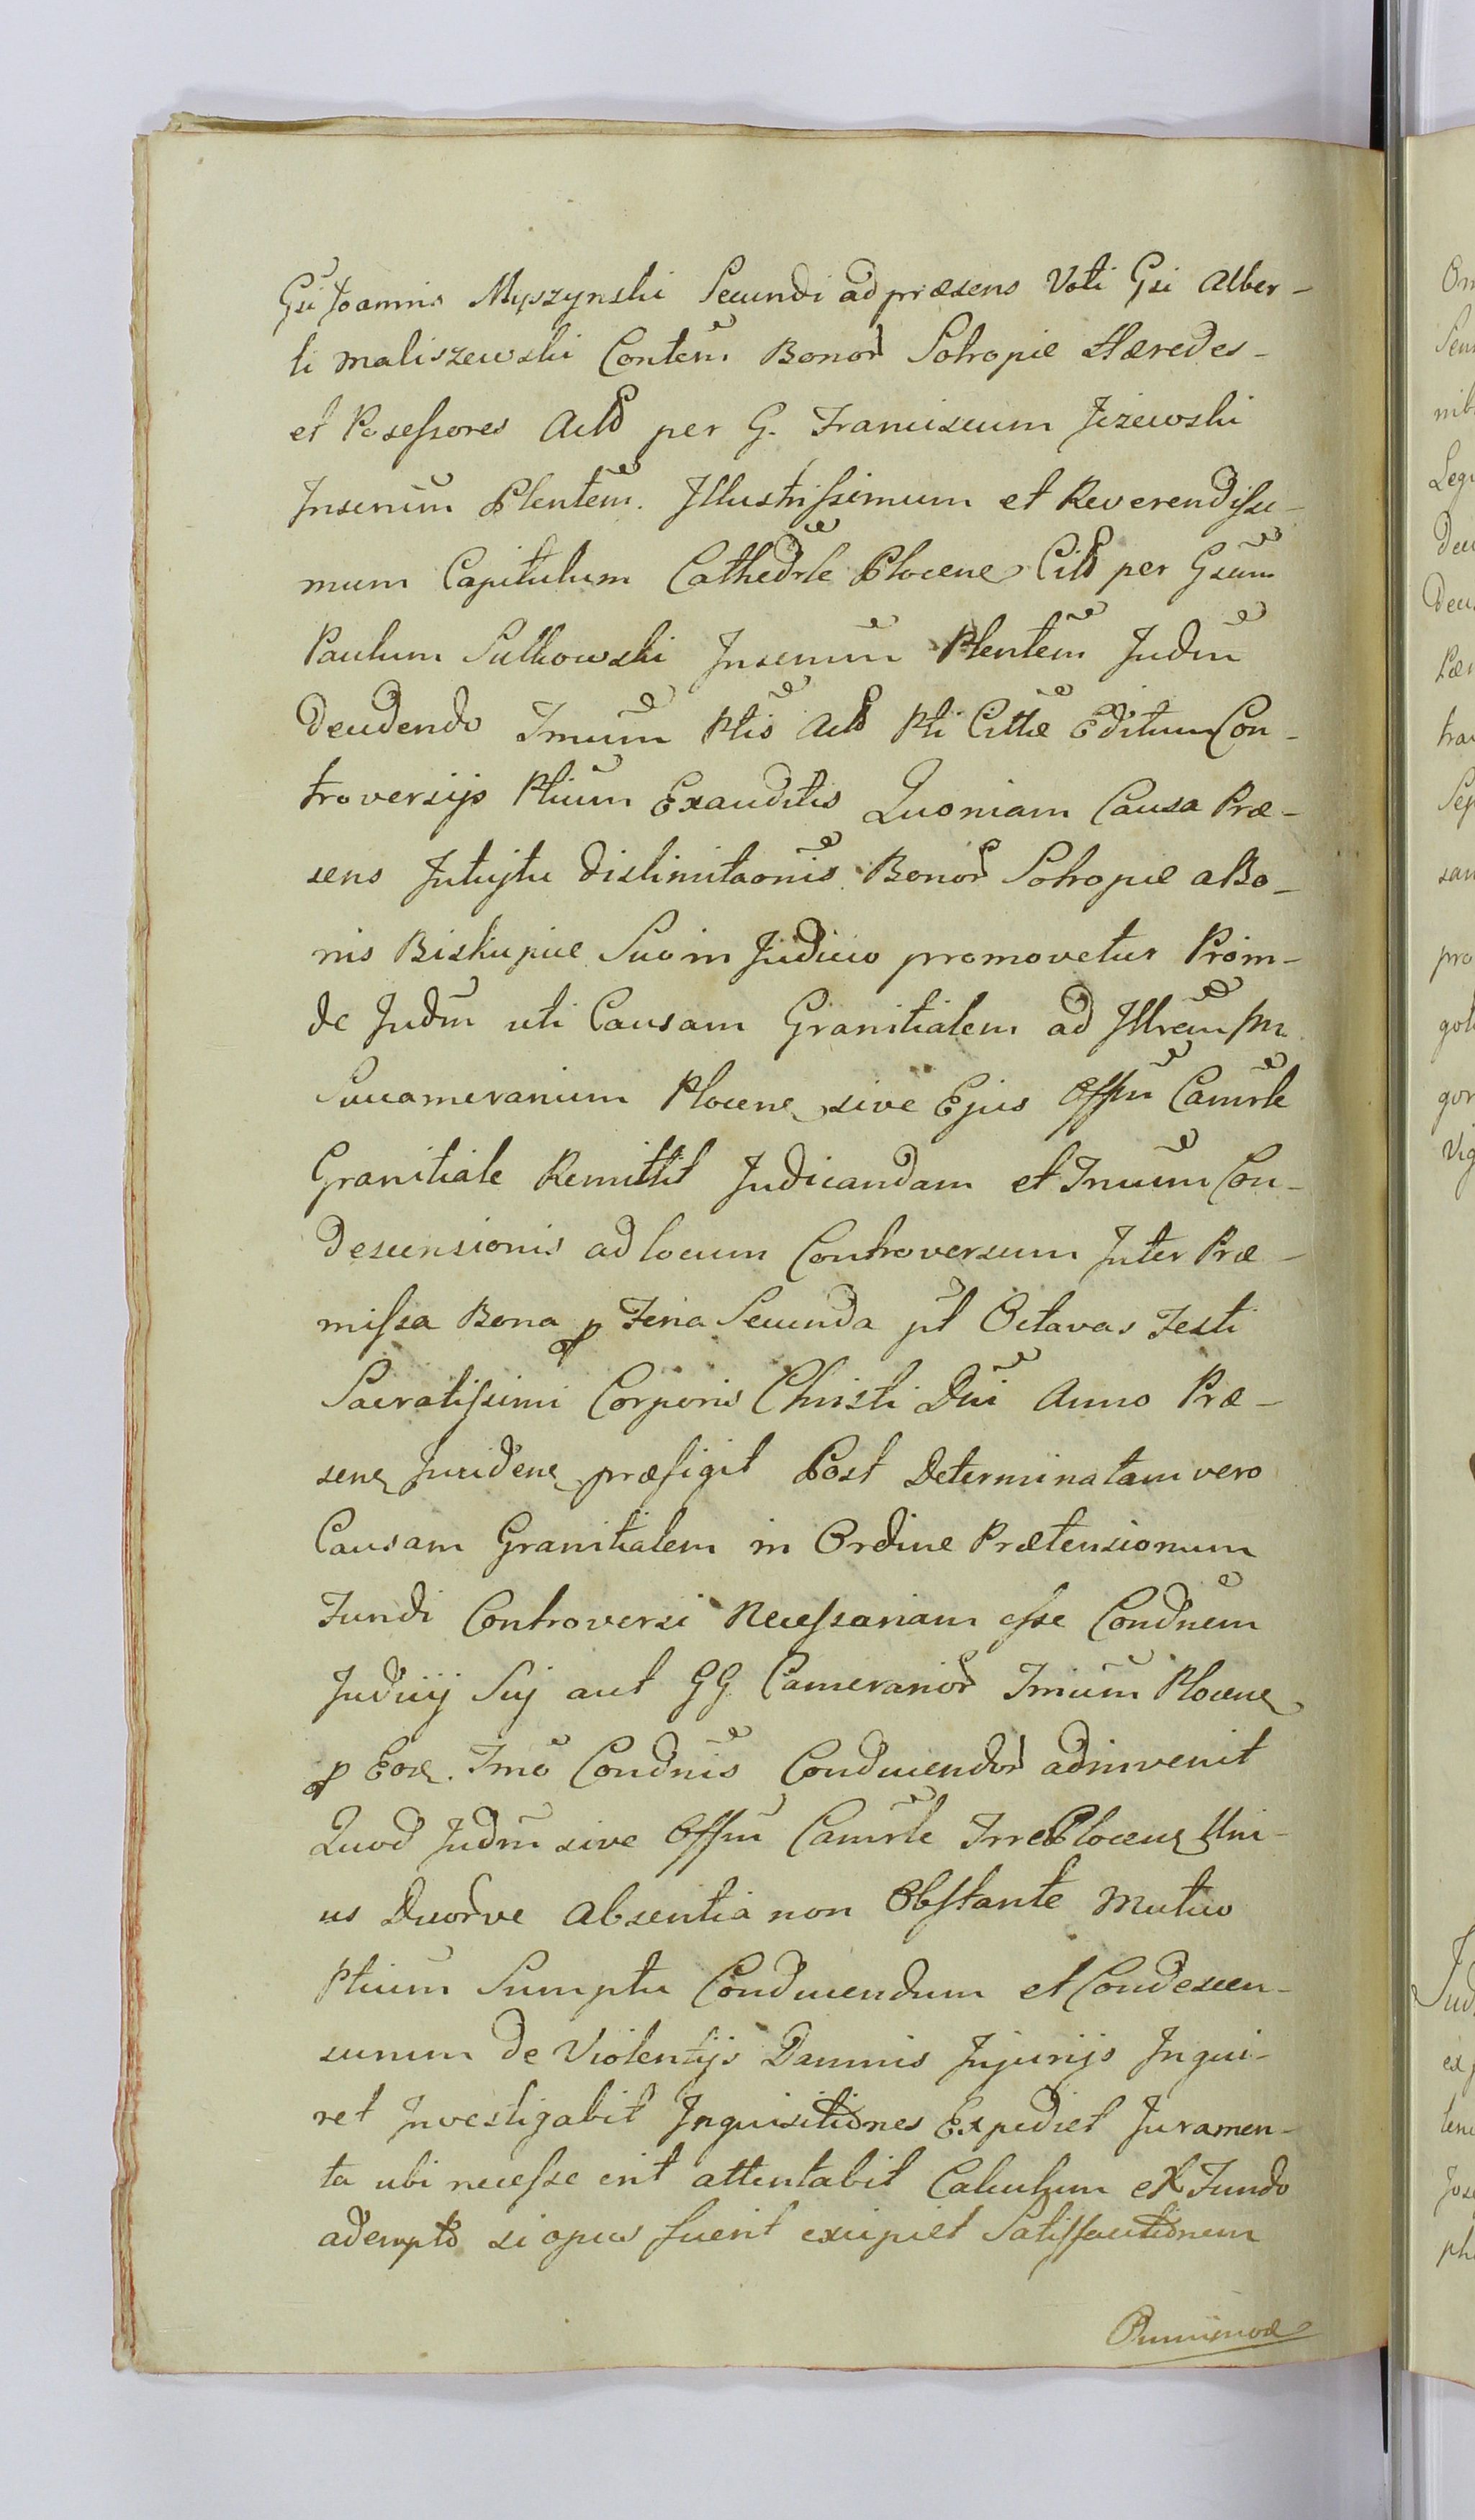 Gsi Joannis Myszynski Secundi ad præsens Voti Gsi Alber-
ti Maliszewski Contem Bonor Sokropie Hæredes-
et Posessores Actt per G. Franciscum Jezewski
Inserim Plentem. Illustrissimum et Reverendissi-
mum Capitulum Cathedrle Plocene Citt per Gsum
Paulum Sulkowski Inserim Plentem Judm
Decidendo Tmum Ptis Actt Pti Cittæ Editum Con-
troversijs Ptium Exauditis Quoniam Causa Præ-
sens Jntujtu dislimitaonis Bonor Sokropie a Bo-
nis Biskupice Suo in Judicio promovetur Proin-
de Judm uti Causam Granitialem ad Jllrem M
Succamerarium Plocen sive Ejus Offm Camrle
Granitiale Remittit Judicandam et Tmum Con-
descensionis ad locum Controversum Inter Præ-
missa Bona p Feria Secunda pt Octavas Festi
Sacratissimi Corporis Christi Dni Anno Præ-
sen Juriden præfigit Post Determinatam vero
Causam Granitialem in Ordine Prætensionum
Fundi Controversi Necessariam esse Condnem
Judicij Sui aut GG Camerarior Trium Plocen
p Eod. Tmo Condnis Conducendor adinvenit
Quod Judm sive Offm Camrle Trre Plocen Uni-
us Duorve Absentia non Obstante Mutuo
Ptium Sumptu Conducendum et Condescen-
surum de Violentijs Damnis Injurijs Inqui-
ret Investigabit Inquisitiones Expediet Juramen-
ta ubi necesse erit attentabit Calculum ex Fundo
adempto si opus fuerit excipiet Satisfactionem